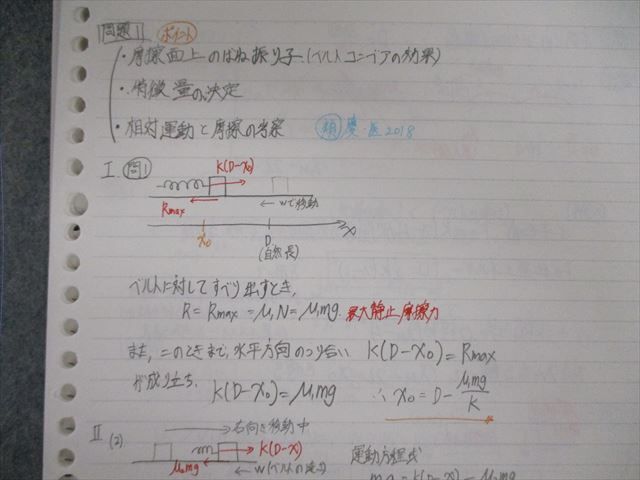 問題1 ポイント
・摩擦面上のばね振り子(ベルトコンベアの効果)
・特徴量の決定
・相対運動と摩擦の考察 類 慶・医2018
I. 問1
K(D-x₀)
Rmax ← wで移動
x₀ D x
(自然長)
ベルトに対してすべり出すとき,
R = Rmax = μ₁N = μ₁mg. 最大静止摩擦力
また, このときまで, 水平方向のつり合い K(D-x₀) = Rmax
が成り立ち, K(D-x₀) = μ₁mg ∴ x₀ = D - μ₁mg/K
II (2) 右向き移動中
K(D-x)
μ₂mg ← w(ベルトの速さ) 運動方程式